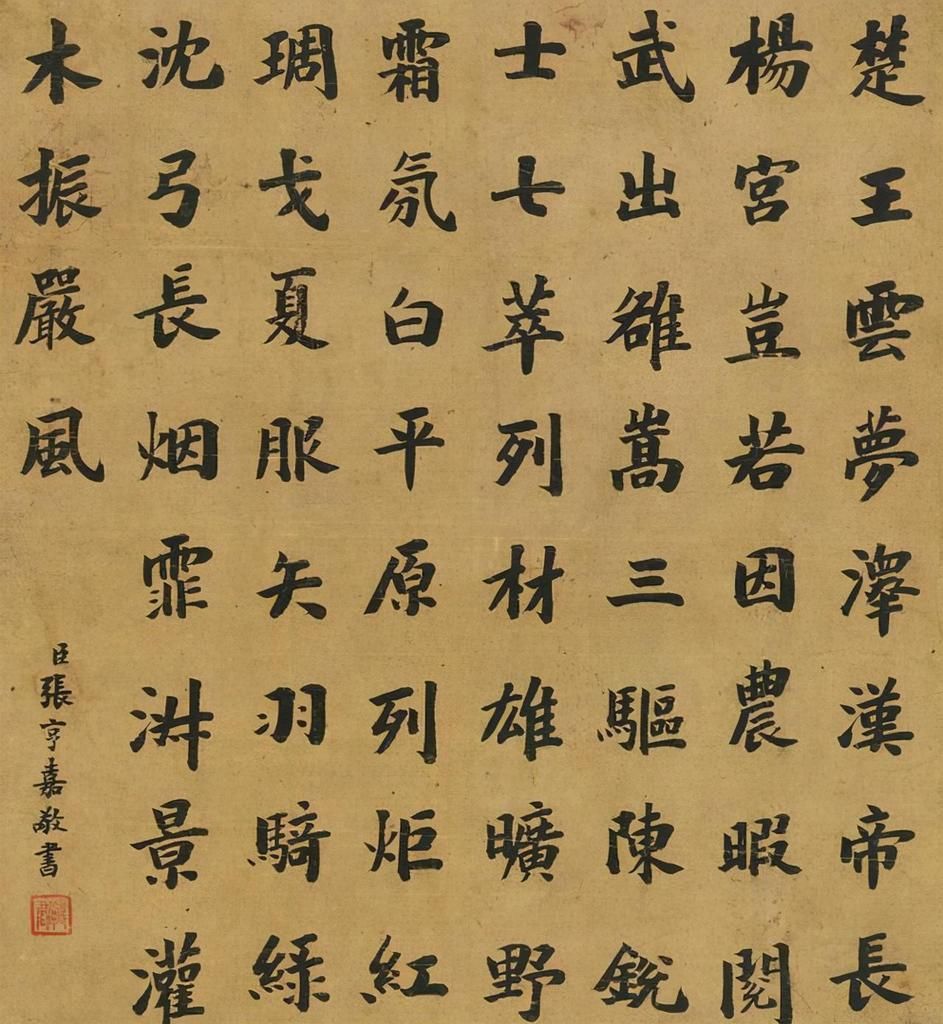 楚王雲夢澤漢帝長
楊宮豈若因農暇閱
武出雒嵩三驅陳銳
士七萃列材雄曠野
霜氛白平原列炬紅
琱戈夏服矢羽騎綠
沈弓長烟霏景灌
木振嚴風
臣張亨嘉敬書